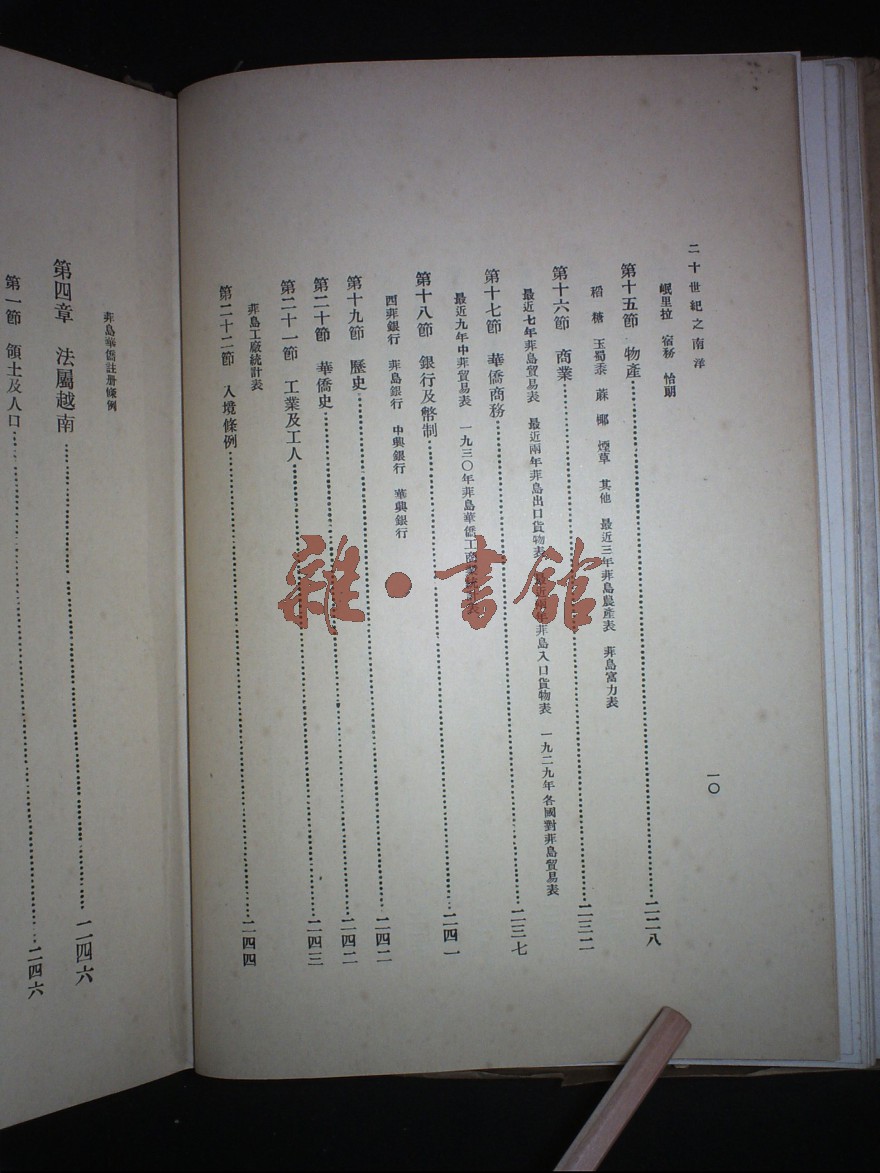 二十世紀之南洋
一〇
岷里拉 宿務 怡朗
第十五節 物產……二二八
稻 糖 玉蜀黍 蔴 椰 煙草 其他 最近三年菲島農產表 菲島富力表
第十六節 商業……二三二
最近七年菲島貿易表 最近兩年菲島出口貨物表 最近兩年菲島入口貨物表 一九二九年各國對菲島貿易表
第十七節 華僑商務……二三七
最近九年中菲貿易表 一九三〇年菲島華僑工商業
第十八節 銀行及幣制……二四一
四菲銀行 菲島銀行 中興銀行 華興銀行
第十九節 歷史……二四二
第二十節 華僑史……二四二
第二十一節 工業及工人……二四三
菲島工廠統計表
第二十二節 入境條例……二四四
菲島華僑註册條例
第四章 法屬越南……二四六
第一節 領土及人口……二四六
雜·書館